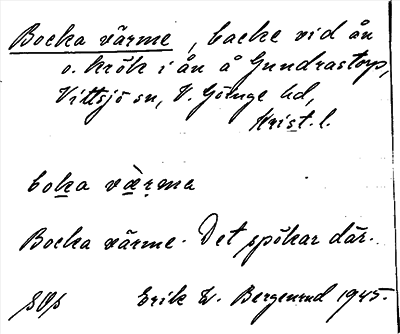 Bocka värme, backe vid ån
o. krök i ån å Gundrastorp,
Vittsjö sn, V. Göinge hd,
Krist. l.
boka værma
Bocka värme. Det spökar där.
Erik W. Bergenrud 1945.